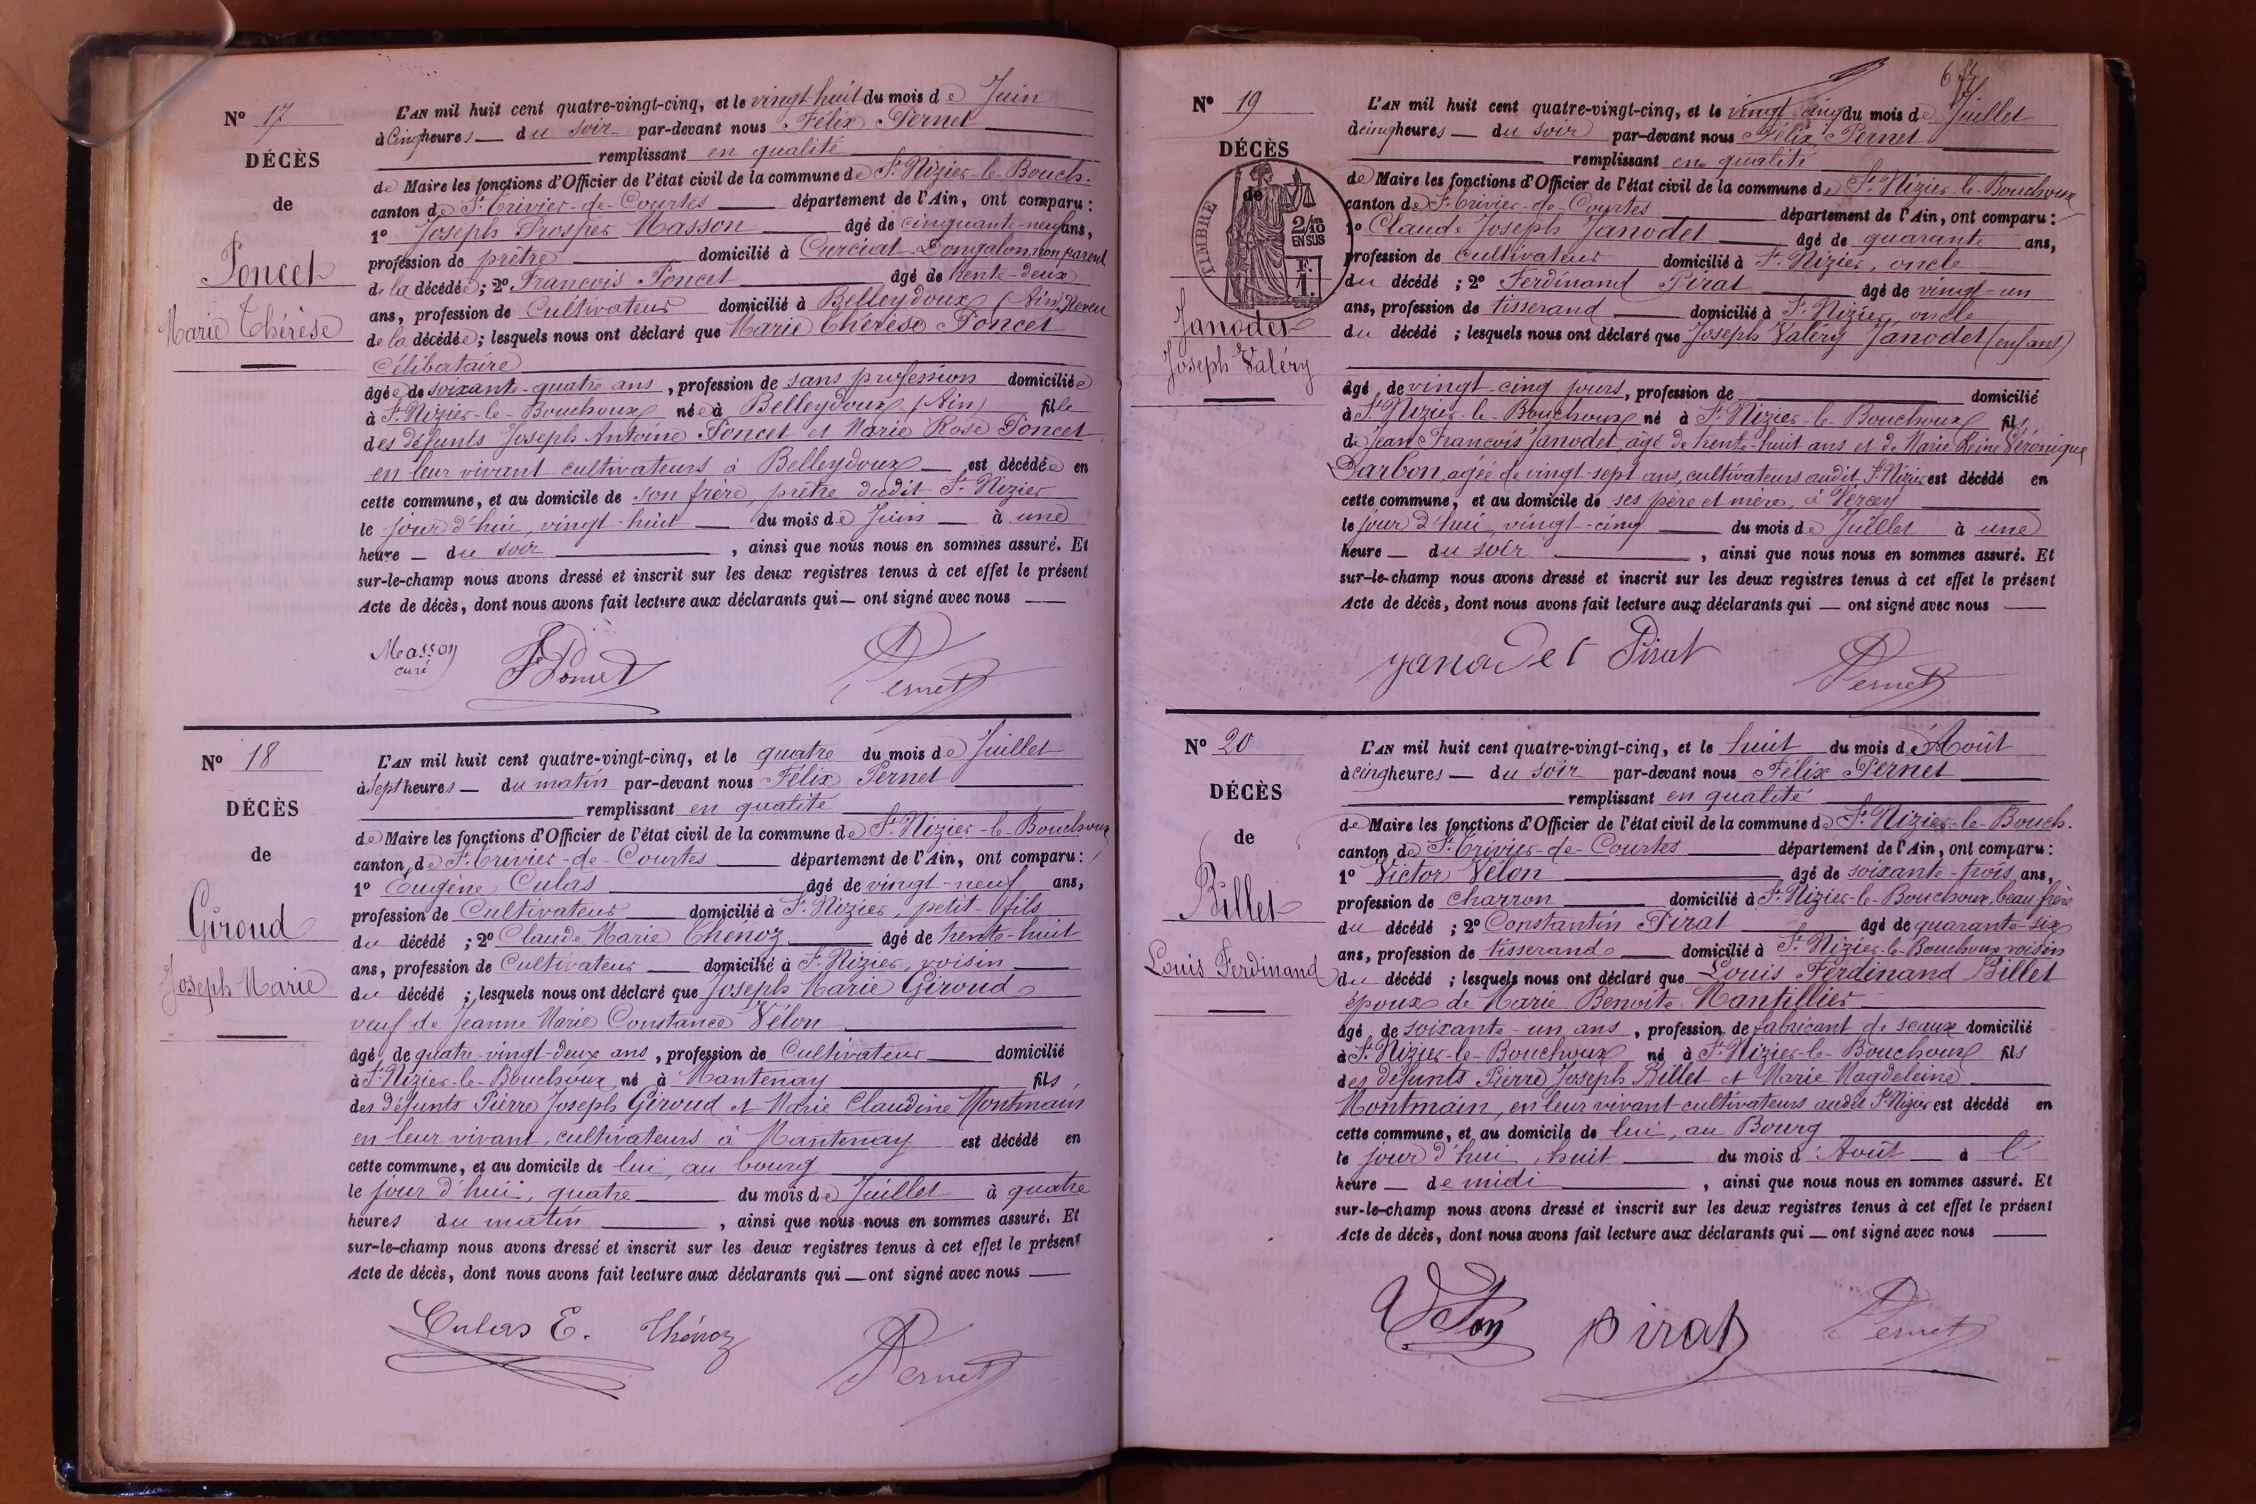 N° 17
DÉCÈS
de
Poncet
Marie Thérèse
L'AN mil huit cent quatre-vingt-cinq, et le vingt-huit du mois de Juin
à Cinq heures — du soir par-devant nous Félix Pernet
remplissant en qualité
de Maire les fonctions d'Officier de l'état civil de la commune de St Nizier-le-Bouch.
canton de St Trivier-de-Courtes département de l'Ain, ont comparu :
1° Joseph Prosper Masson âgé de cinquante-neuf ans,
profession de prêtre domicilié à Curciat-Dongalon, non parent
de la décédée ; 2° François Poncet âgé de trente-deux
ans, profession de Cultivateur domicilié à Belleydoux (Ain), Neveu
de la décédée ; lesquels nous ont déclaré que Marie Thérèse Poncet
Célibataire
âgée de soixante-quatre ans, profession de sans profession domiciliée
à St Nizier-le-Bouchoux née à Belleydoux (Ain) fille
des défunts Joseph Antoine Poncet et Marie Rose Poncet
en leur vivant cultivateurs à Belleydoux — est décédée en
cette commune, et au domicile de son frère, prêtre dudit St Nizier
le jour d'hui, vingt-huit — du mois de Juin — à une
heure — du soir, ainsi que nous nous en sommes assuré. Et
sur-le-champ nous avons dressé et inscrit sur les deux registres tenus à cet effet le présent
Acte de décès, dont nous avons fait lecture aux déclarants qui — ont signé avec nous —
Masson
curé
F Poncet
Pernet
N° 18
DÉCÈS
de
Giroud
Joseph Marie
L'AN mil huit cent quatre-vingt-cinq, et le quatre du mois de Juillet
à Sept heures — du matin par-devant nous Félix Pernet
remplissant en qualité
de Maire les fonctions d'Officier de l'état civil de la commune de St Nizier-le-Bouchoux
canton de St Trivier-de-Courtes département de l'Ain, ont comparu :
1° Eugène Culas âgé de vingt-neuf ans,
profession de Cultivateur domicilié à St Nizier, petit-fils
du décédé ; 2° Claude Marie Chenoz âgé de trente-huit
ans, profession de Cultivateur domicilié à St Nizier, voisin
du décédé ; lesquels nous ont déclaré que Joseph Marie Giroud
veuf de Jeanne Marie Constance Vélon
âgé de quatre-vingt-deux ans, profession de Cultivateur domicilié
à St Nizier-le-Bouchoux né à Mantenay fils
des défunts Pierre Joseph Giroud et Marie Claudine Montmain
en leur vivant, cultivateurs à Mantenay est décédé en
cette commune, et au domicile de lui, au bourg
le jour d'hui, quatre du mois de Juillet à quatre
heures du matin, ainsi que nous nous en sommes assuré. Et
sur-le-champ nous avons dressé et inscrit sur les deux registres tenus à cet effet le présent
Acte de décès, dont nous avons fait lecture aux déclarants qui — ont signé avec nous —
Culas E. Thénoz
Pernet
N° 19
DÉCÈS
de
TIMBRE
2/10
EN SUS
F.
1.
Janodet
Joseph Valéry
L'AN mil huit cent quatre-vingt-cinq, et le vingt-cinq du mois de Juillet
à cinq heures — du soir par-devant nous Félix Pernet
remplissant en qualité
de Maire les fonctions d'Officier de l'état civil de la commune de St Nizier-le-Bouchoux
canton de St Trivier-de-Courtes département de l'Ain, ont comparu :
1° Claude Joseph Janodet âgé de quarante ans,
profession de cultivateur domicilié à St Nizier, oncle
du décédé ; 2° Ferdinand Pirat âgé de vingt-un
ans, profession de tisserand domicilié à St Nizier, oncle
du décédé ; lesquels nous ont déclaré que Joseph Valéry Janodet (enfant)
âgé de vingt-cinq jours, profession de domicilié
à St Nizier-le-Bouchoux né à St Nizier-le-Bouchoux fils
de Jean François Janodet, âgé de trente-huit ans et de Marie Reine Véronique
Darbon, agée de vingt-sept ans, cultivateurs audit St Nizier est décédé en
cette commune, et au domicile de ses père et mère, à
le jour d'hui, vingt-cinq du mois de Juillet à une
heure — du soir, ainsi que nous nous en sommes assuré. Et
sur-le-champ nous avons dressé et inscrit sur les deux registres tenus à cet effet le présent
Acte de décès, dont nous avons fait lecture aux déclarants qui — ont signé avec nous —
yanodet Pirat
Pernet
N° 20
DÉCÈS
de
Billet
Louis Ferdinand
L'AN mil huit cent quatre-vingt-cinq, et le huit du mois d'Août
à cinq heures — du soir par-devant nous Félix Pernet
remplissant en qualité
de Maire les fonctions d'Officier de l'état civil de la commune de St Nizier-le-Bouch.
canton de St Trivier-de-Courtes département de l'Ain, ont comparu :
1° Victor Vélon âgé de soixante-trois ans,
profession de charron domicilié à St Nizier-le-Bouchoux, beau frère
du décédé ; 2° Constantin Pirat âgé de quarante-six
ans, profession de tisserand domicilié à St Nizier-le-Bouchoux, voisin
du décédé ; lesquels nous ont déclaré que Louis Ferdinand Billet
époux de Marie Benoite Mantillier
âgé de soixante-un ans, profession de fabricant de seaux domicilié
à St Nizier-le-Bouchoux né à St Nizier-le-Bouchoux fils
des défunts Pierre Joseph Billet et Marie Magdeleine
Montmain, en leur vivant cultivateurs audit St Nizier est décédé en
cette commune, et au domicile de lui, au Bourg
le jour d'hui, huit du mois d'Août — à l'
heure — de midi, ainsi que nous nous en sommes assuré. Et
sur-le-champ nous avons dressé et inscrit sur les deux registres tenus à cet effet le présent
Acte de décès, dont nous avons fait lecture aux déclarants qui — ont signé avec nous —
Velon pirat
Pernet